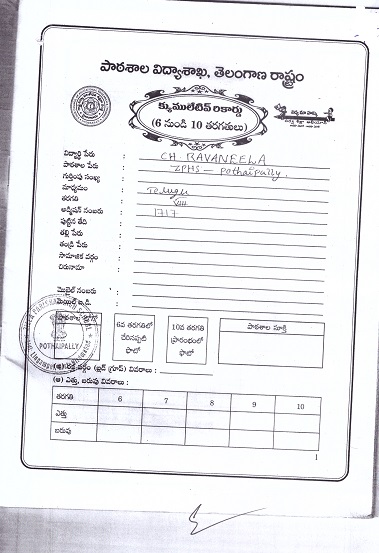 పాఠశాల విద్యాశాఖ, తెలంగాణ రాష్ట్రం
క్యుములేటివ్ రికార్డు
(6 నుండి 10 తరగతులు)
విద్యార్థి పేరు : CH RAVANEELA
పాఠశాల పేరు : ZPHS - Pothaipally.
గుర్తింపు సంఖ్య :
మాధ్యమం : Telugu
తరగతి : VIII
అడ్మిషన్ నంబరు : 1717
పుట్టిన తేది :
తల్లి పేరు :
తండ్రి పేరు :
సామాజిక వర్గం :
చిరునామా :
మొబైల్ నంబరు :
మెయిల్ ఐ.డి. :
పాఠశాల
6వ తరగతిలో చేరినప్పటి ఫొటో
10వ తరగతి ప్రారంభంలో ఫొటో
పాఠశాల సూక్తి
POTHAIPALLY
(అ) రక్త వర్గం (బ్లడ్ గ్రూప్) వివరాలు :
(ఆ) ఎత్తు, బరువు వివరాలు :
తరగతి 6 7 8 9 10
ఎత్తు
బరువు
1